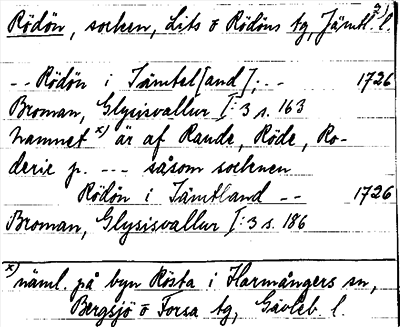 Rödön, socken, Lits o Rödöns tg, Jämtl. l.
-- Rödön i Jämtel[and]; -- 1726
Broman, Glysisvallur I:3 s. 163
hamnet x) är af Raude, Röde, Ro-
derie p. --- såsom socknen
Rödön i Jämtland -- 1726
Broman, Glysisvallur I:3 s. 186
x) näml. på byn Rösta i Harmångers sn,
Bergsjö o Forsa tg, Gävleb. l.